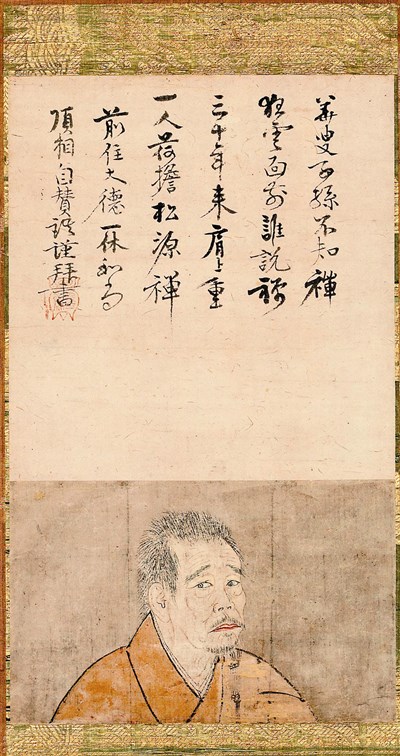 華叟子孫不知禪
狂雲面前誰説禅
三十年来肩上重
一人荷擔松源禪
前住大德一休和尚
頂相自賛語謹拝書